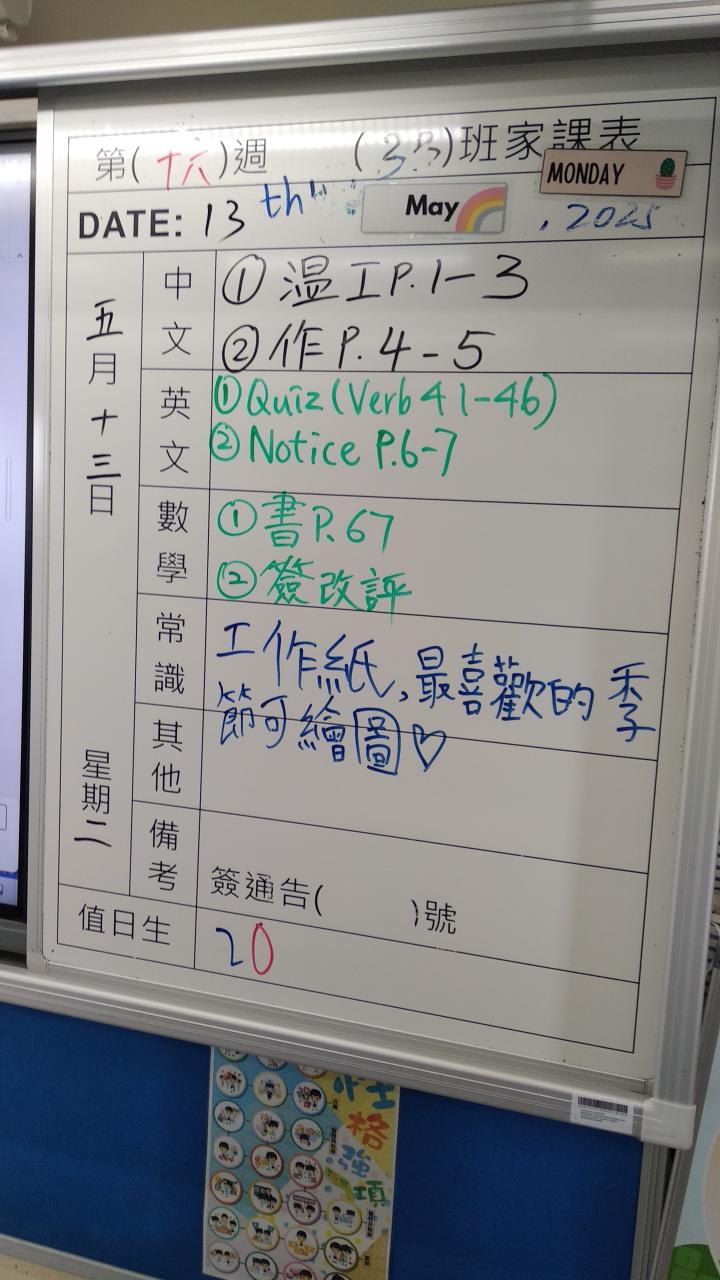 第(十六)週 (3B)班家課表
MONDAY
DATE: 13th May , 2025
五月十三日
星期二
中文
① 温工P.1-3
② 作P.4-5
英文
① Quiz (Verb 41-46)
② Notice P.6-7
數學
① 書P.67
② 簽改評
常識
工作紙,最喜歡的季
節可繪圖♡
其他
備考
簽通告( )號
值日生
20
性格強項